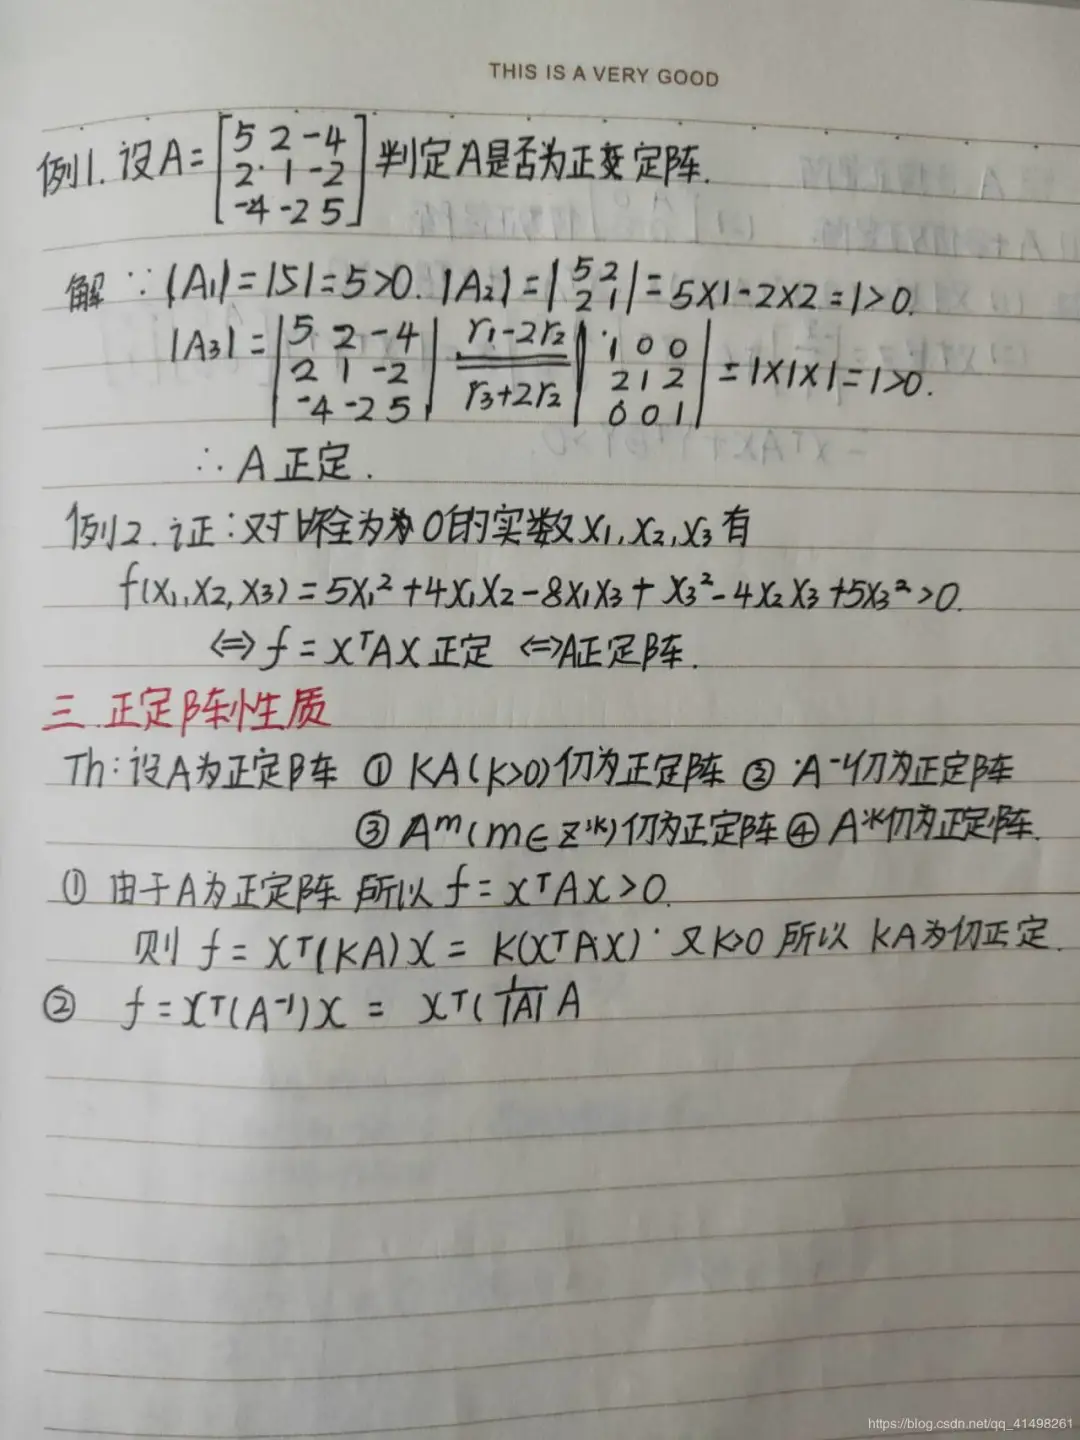 THIS IS A VERY GOOD
例1. 设A=[5 2 -4; 2 1 -2; -4 -2 5] 判定A是否为正定阵.
解 ∵ |A₁|=|5|=5>0. |A₂|=|5 2; 2 1|=5×1-2×2=1>0.
|A₃|=|5 2 -4; 2 1 -2; -4 -2 5| r₁-2r₂ r₃+2r₂ |1 0 0; 2 1 2; 0 0 1|=1×1×1=1>0.
∴ A 正定.
例2. 证:对不全为0的实数X₁,X₂,X₃有
f(X₁,X₂,X₃)=5X₁²+4X₁X₂-8X₁X₃+X₃²-4X₂X₃+5X₃²>0.
⟺ f=XᵀAX 正定 ⟺A正定阵.
三.正定阵性质
Th:设A为正定阵 ① KA(K>0)仍为正定阵 ② A⁻¹仍为正定阵
③ Aᵐ(m∈Z*)仍为正定阵 ④ A*仍为正定阵.
① 由于A为正定阵 所以 f=XᵀAX>0.
则 f=Xᵀ(KA)X=K(XᵀAX) 又K>0 所以 KA为仍正定.
② f=Xᵀ(A⁻¹)X = Xᵀ(1/|A| A
https://blog.csdn.net/qq_41498261